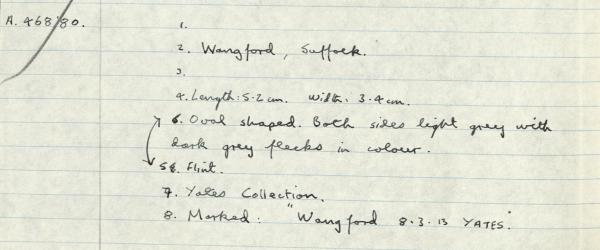 A. 468/80.
1.
2. Wangford, Suffolk.
3.
4. Length: 5.2 cm. Width: 3.4 cm.
6. Oval shaped. Both sides light grey with
dark grey flecks in colour.
5. Flint.
7. Yates Collection.
8. Marked: "Wangford 8.3.13 YATES."